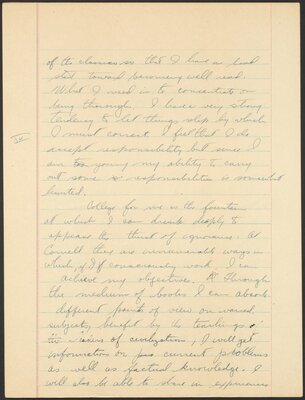 of the classics so that I have a good
start toward becoming well read.
What I need is to concentrate on
being thorough. I have a very strong
tendency to let things slip by which
I must correct. I feel that I do
accept responsibility but since I
am too young my ability to carry
out some responsibilities is somewhat
limited.
College for me is the fountain
at which I can drink deeply to
appease the thirst of ignorance. At
Cornell there are innumerable ways in
which, if I conscientiously work, I can
achieve my objectives. Through
the medium of books I can absorb
different points of view on varied
subjects, benefit by the teachings of
of civilization, I will get
information on current problems
as well as factual knowledge. I
will also be able to share in experiences